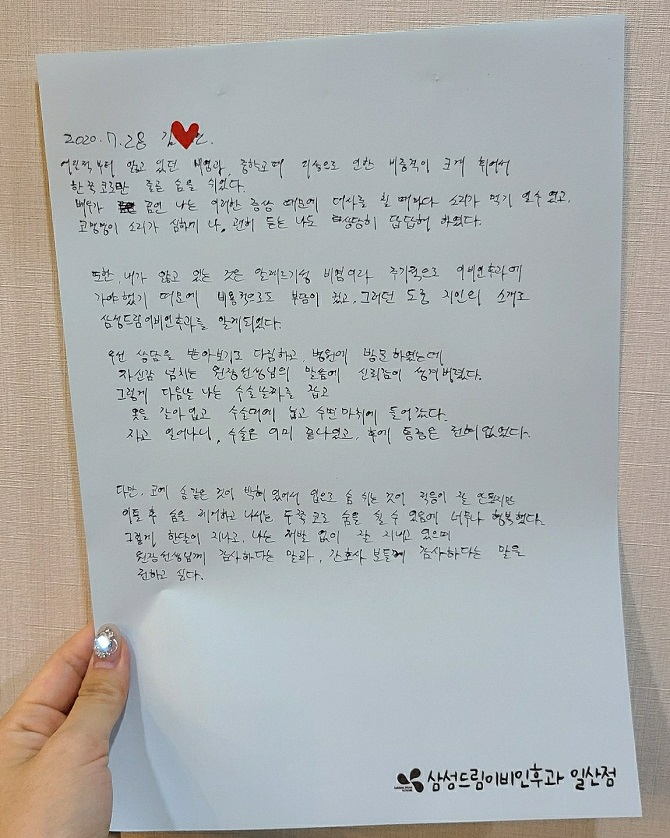 2020.7.28 김
어린적부터 앓고 있던 비염과, 중학교때 외상으로 인한 비중격이 크게 휘어서
한쪽 코로만 줄곧 숨을 쉬었다.
배우가 꿈인 나는 이러한 증상 때문에 대사를 칠 때마다 소리가 먹기 일수였고,
코맹맹이 소리가 심하게 나, 괜히 듣는 나도 상당히 답답해 하였다.
또한, 내가 앓고 있는 것은 알레르기성 비염이라 주기적으로 이비인후과에
가야했기 때문에 비용적으로도 부담이 컸고, 그러던 도중 지인의 소개로
삼성드림이비인후과를 알게되었다.
우선 상담을 받아보기로 다짐하고, 병원에 방문하였는데
자신감 넘치는 원장선생님의 말씀에 신뢰감이 생겨버렸다.
그렇게 다음날 나는 수술날짜를 잡고
옷을 갈아입고 수술대에 눕고 수면마취에 들어갔다.
자고 일어나니, 수술은 이미 끝나있고, 후에 통증은 전혀 없었다.
다만, 코에 솜같은 것이 박혀 있어서 입으로 숨 쉬는 것이 적응이 잘 안됐지만
이틀 후 솜을 제거하고 나서는 두쪽 코로 숨을 쉴 수 있음에 너무나 행복했다.
그렇게 한달이 지나고, 나는 재발 없이 잘 지내고 있으며
원장선생님께 감사하다는 말과, 간호사 분들께 감사하다는 말을
전하고 싶다.
삼성드림이비인후과 일산점